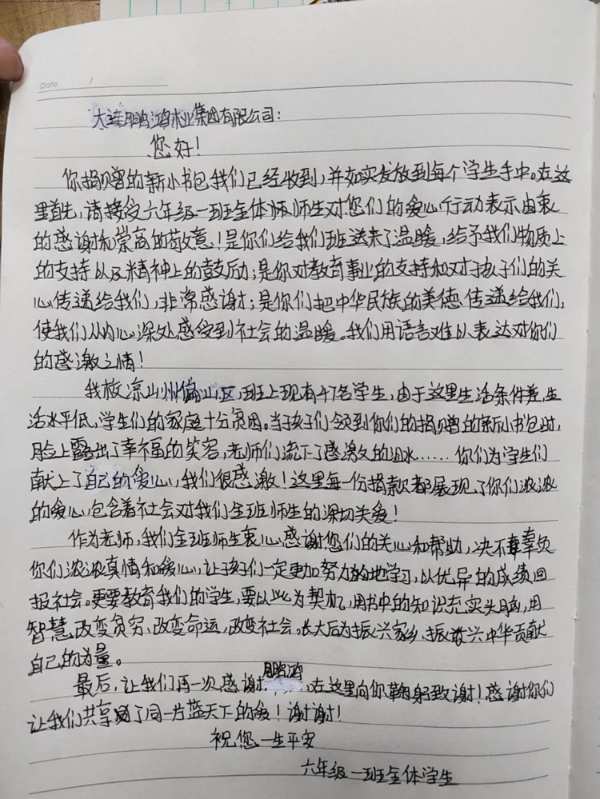 Date
大连鹏鸿木业集团有限公司：
您好！
你捐赠的新小书包我们已经收到，并如实发放到每个学生手中。在这
里首先，请接受六年级一班全体师生对您们的爱心行动表示由衷
的感谢和崇高的敬意！是你们给我们班送来了温暖，给予我们物质上
的支持以及精神上的鼓励；是你对教育事业的支持和对于孩子们的关
心传递给我们，非常感谢；是你们把中华民族的美德传递给我们，
使我们从内心深处感受到社会的温暖。我们用语言难以表达对你们
的感激之情！
我校凉山州偏山区，班上现有47名学生，由于这里生活条件差，生
活水平低，学生们的家庭十分贫困。当孩子们领到你们的捐赠的新小书包时，
脸上露出了幸福的笑容，老师们流下了感激的泪水……你们为学生们
献上了自己的爱心，我们很感激！这里每一份捐款都展现了你们浓浓
的爱心，包含着社会对我们全班师生的深切关爱！
作为老师，我们全班师生衷心感谢您们的关心和帮助，决不辜负
你们浓浓真情和暖心，让孩子们一定更加努力的地学习，以优异的成绩回
报社会。更要教育我们的学生，要以此为契机，用书中的知识充实头脑，用
智慧改变贫穷、改变命运、改变社会。长大后为振兴家乡、振兴中华贡献
自己的力量。
最后，让我们再一次感谢鹏鸿，在这里向你鞠躬致谢！感谢你们
让我们共享了同一片蓝天下的爱！谢谢！
祝您一生平安
六年级一班全体学生